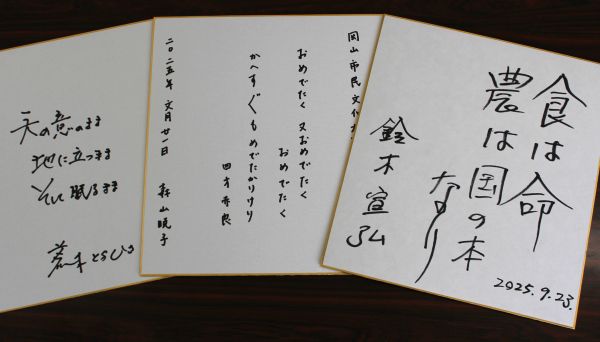 天の意のまま
地に立つまま
そして眠るまま
岡山市民文化
おめでたく又おめでたく
おめでたく
かへすぐもめでたかりけり
四方赤良
二〇二五年 文月廿一日 森山暁子
食は命
農は国の本
なり
鈴木宣弘
2025.9.23.